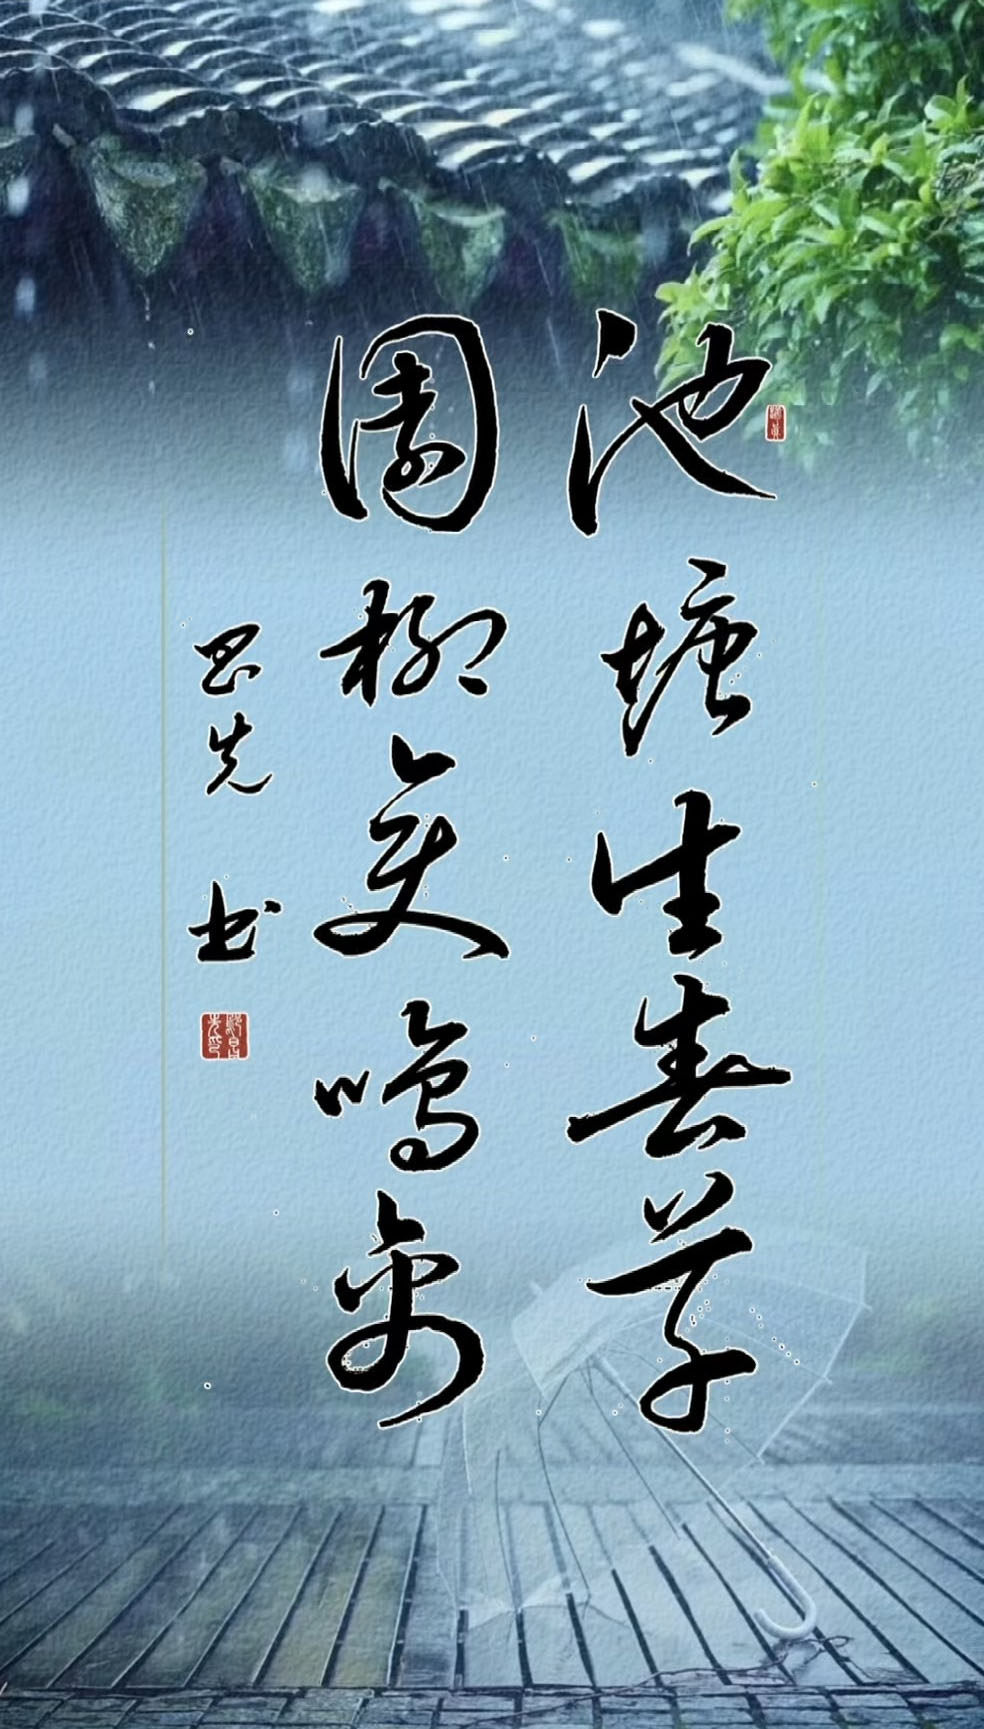 池塘生春草
園柳變鳴禽
昌先 书